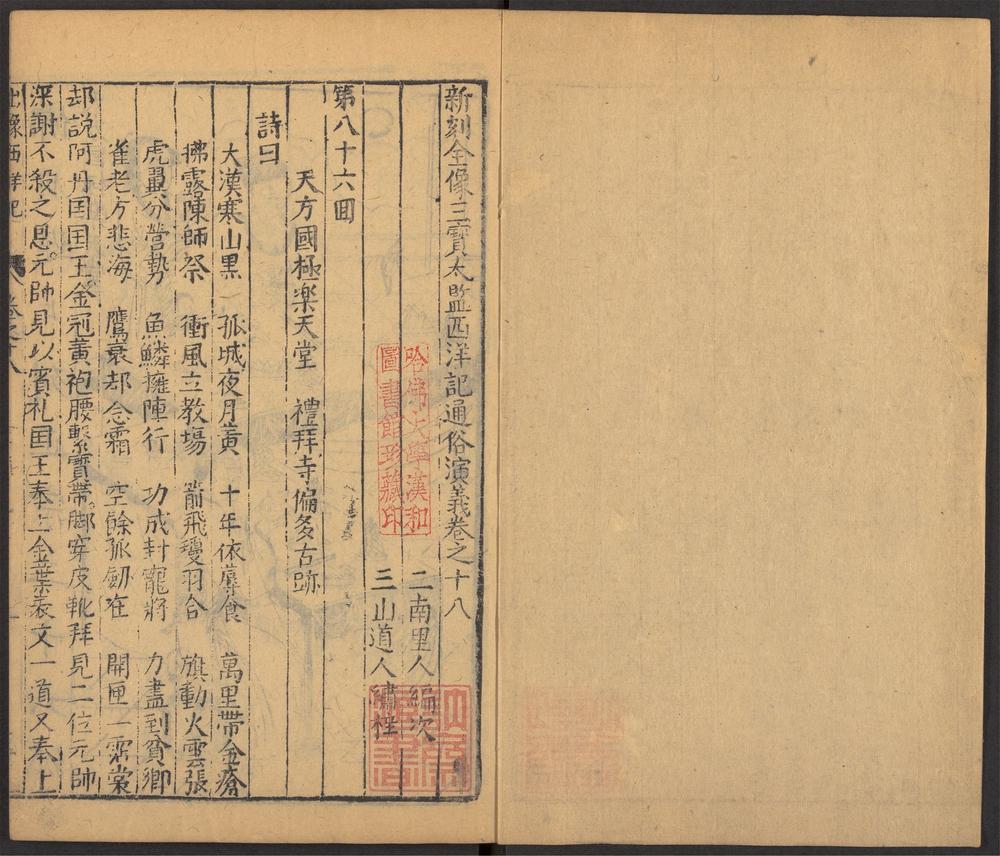 新刻全像三寶太監西洋記通俗演義卷之十八
二南里人編次
三山道人繡梓
哈佛大學漢和
圖書館珍藏印
第八十六囬
天方國極楽天堂 禮拜寺偏多古跡
詩曰
大漢寒山黒 孤城夜月黃 十年依蓐食 萬里帶金瘡
拂露陳師祭 衝風立教場 箭飛瓊羽合 旗動火雲張
虎翼分營勢 魚鱗擁陣行 功成封寵將 力盡到貧鄉
雀老方悲海 鷹衰却念霜 空餘孤劔在 開匣一霑裳
却説阿丹国国王金冠黃袍腰繫寶帶脚穿皮靴拜見二位元帥
深謝不殺之恩元帥見以賓礼国王奉上金葉表文一道又奉上
出像西洋記 卷之十八